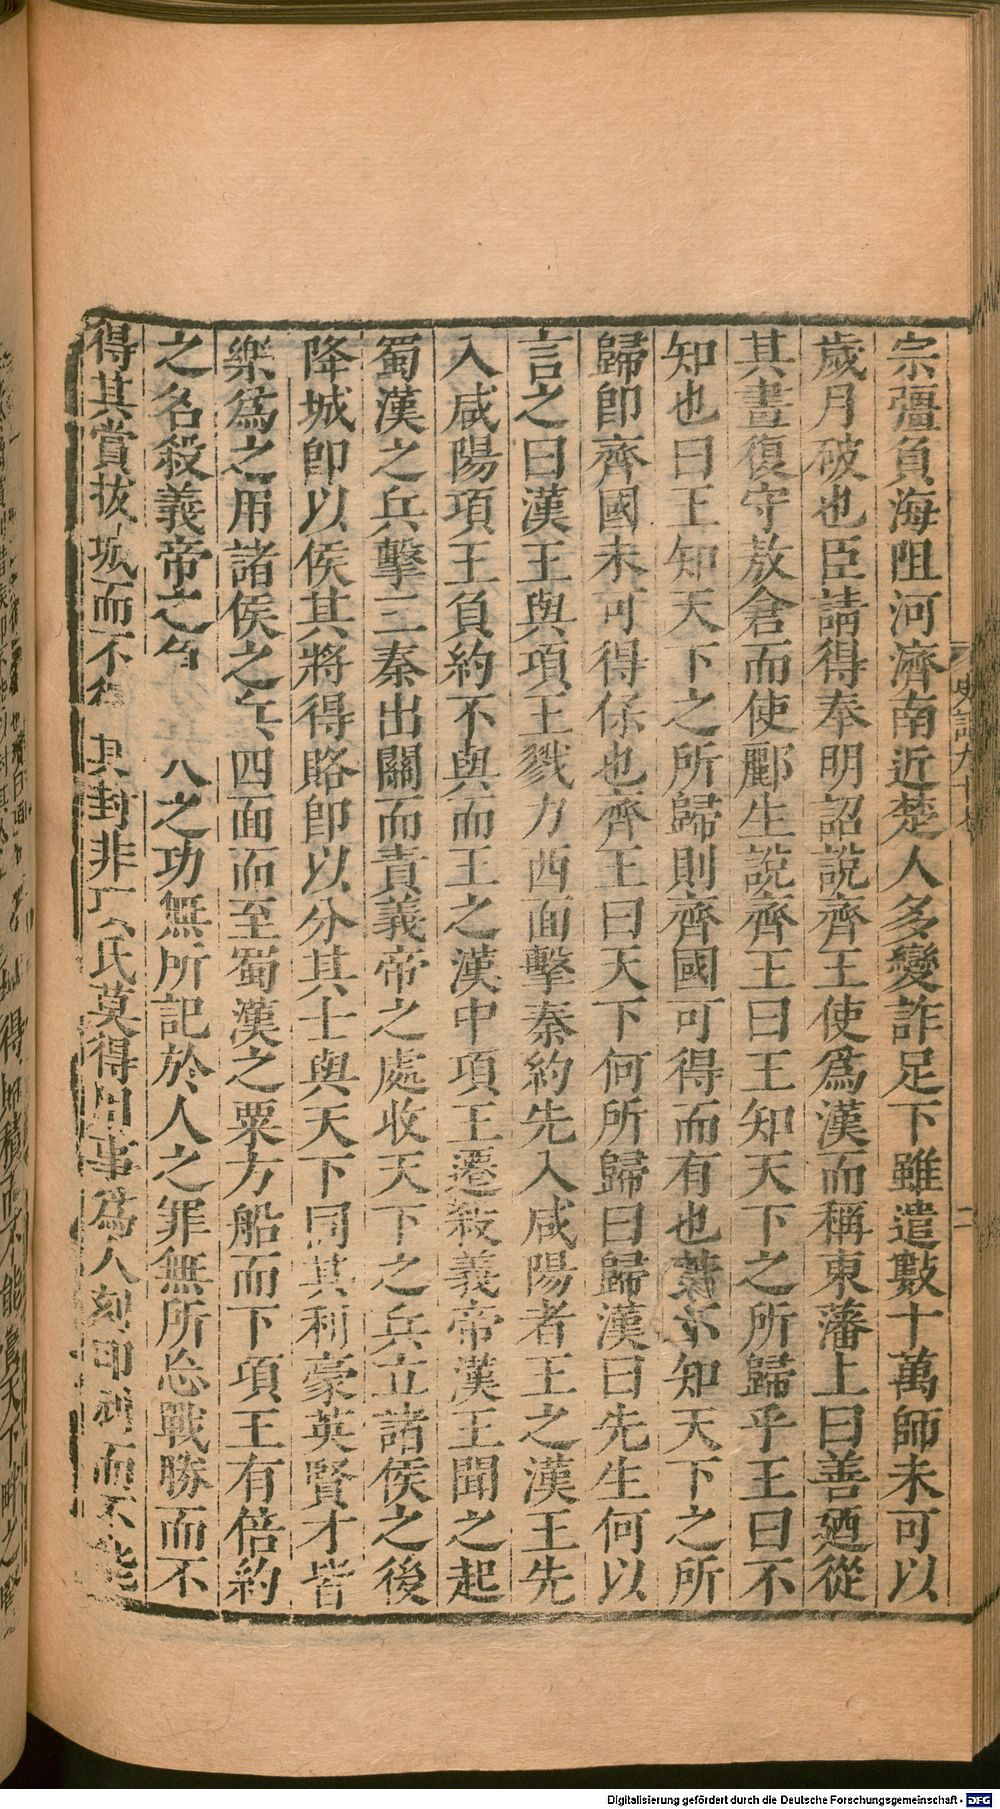 宗彊負海阻河濟南近楚人多變詐足下雖遣數十萬師未可以
歲月破也臣請得奉明詔說齊王使爲漢而稱東藩上曰善廼從
其畫復守敖倉而使酈生說齊王曰王知天下之所歸乎王曰不
知也曰王知天下之所歸則齊國可得而有也若不知天下之所
歸即齊國未可得保也齊王曰天下何所歸曰歸漢曰先生何以
言之曰漢王與項王戮力西面擊秦約先入咸陽者王之漢王先
入咸陽項王負約不與而王之漢中項王遷殺義帝漢王聞之起
蜀漢之兵擊三秦出關而責義帝之處收天下之兵立諸侯之後
降城即以侯其將得賂即以分其士與天下同其利豪英賢才皆
樂爲之用諸侯之兵四面而至蜀漢之粟方船而下項王有倍約
之名殺義帝之負人之功無所記於人之罪無所忘戰勝而不
得其賞拔城而不得其封非項氏莫得用事爲人刻印刓而不能
史記九十七
二
Digitalisierung gefördert durch die Deutsche Forschungsgemeinschaft - DFG